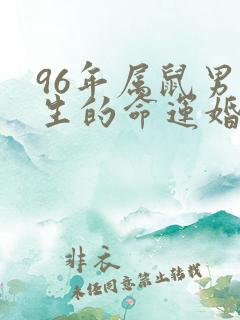 96年属鼠男
生的命运婚
非衣
未经同意禁止转载